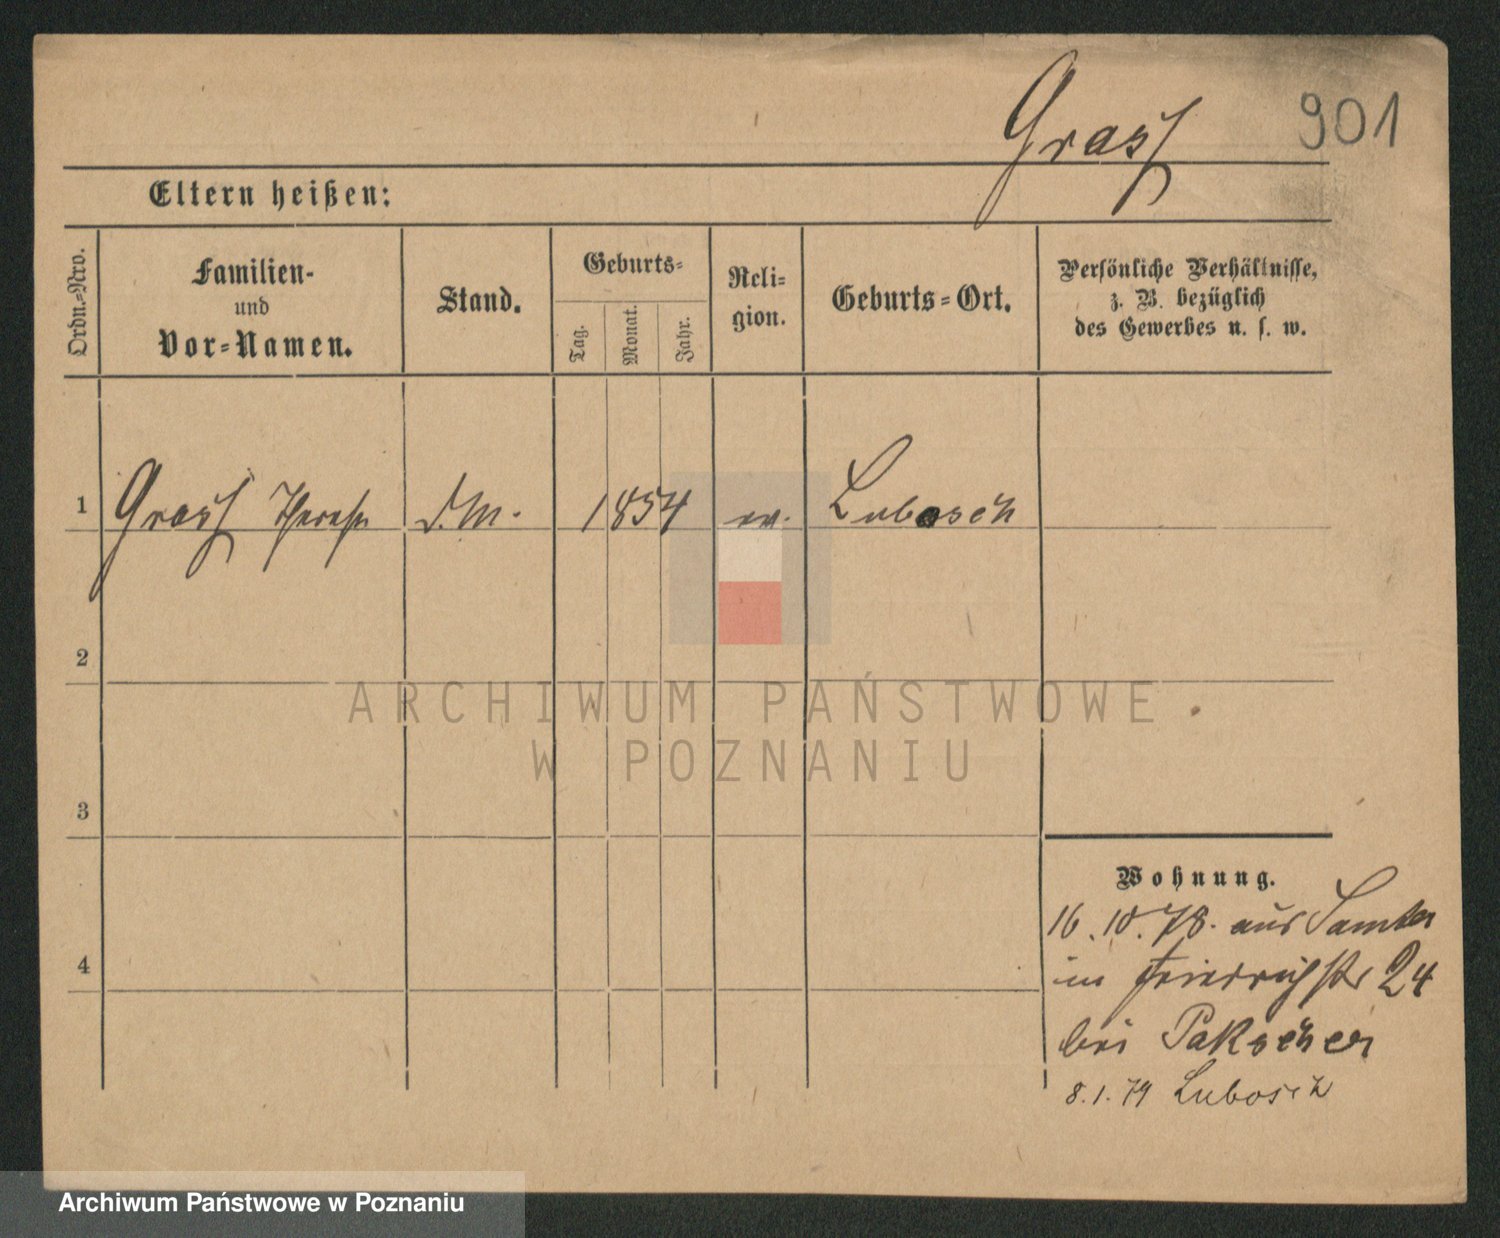 Grass 901
Eltern heißen:
Ordn.-Nro.
Familien-
und
Vor-Namen.
Stand.
Geburts-
Tag.
Monat.
Jahr.
Reli-
gion.
Geburts-Ort.
Persönliche Verhältnisse,
z. B. bezüglich
des Gewerbes u. s. w.
1 Grass Therese d. M. 1854 ev. Lubosch
2
3
4
Wohnung.
16.10.78. aus Samter
in Friedrichstr 24
bei Pakscher
8.1.79 Lubosch
ARCHIWUM PAŃSTWOWE
W POZNANIU
Archiwum Państwowe w Poznaniu